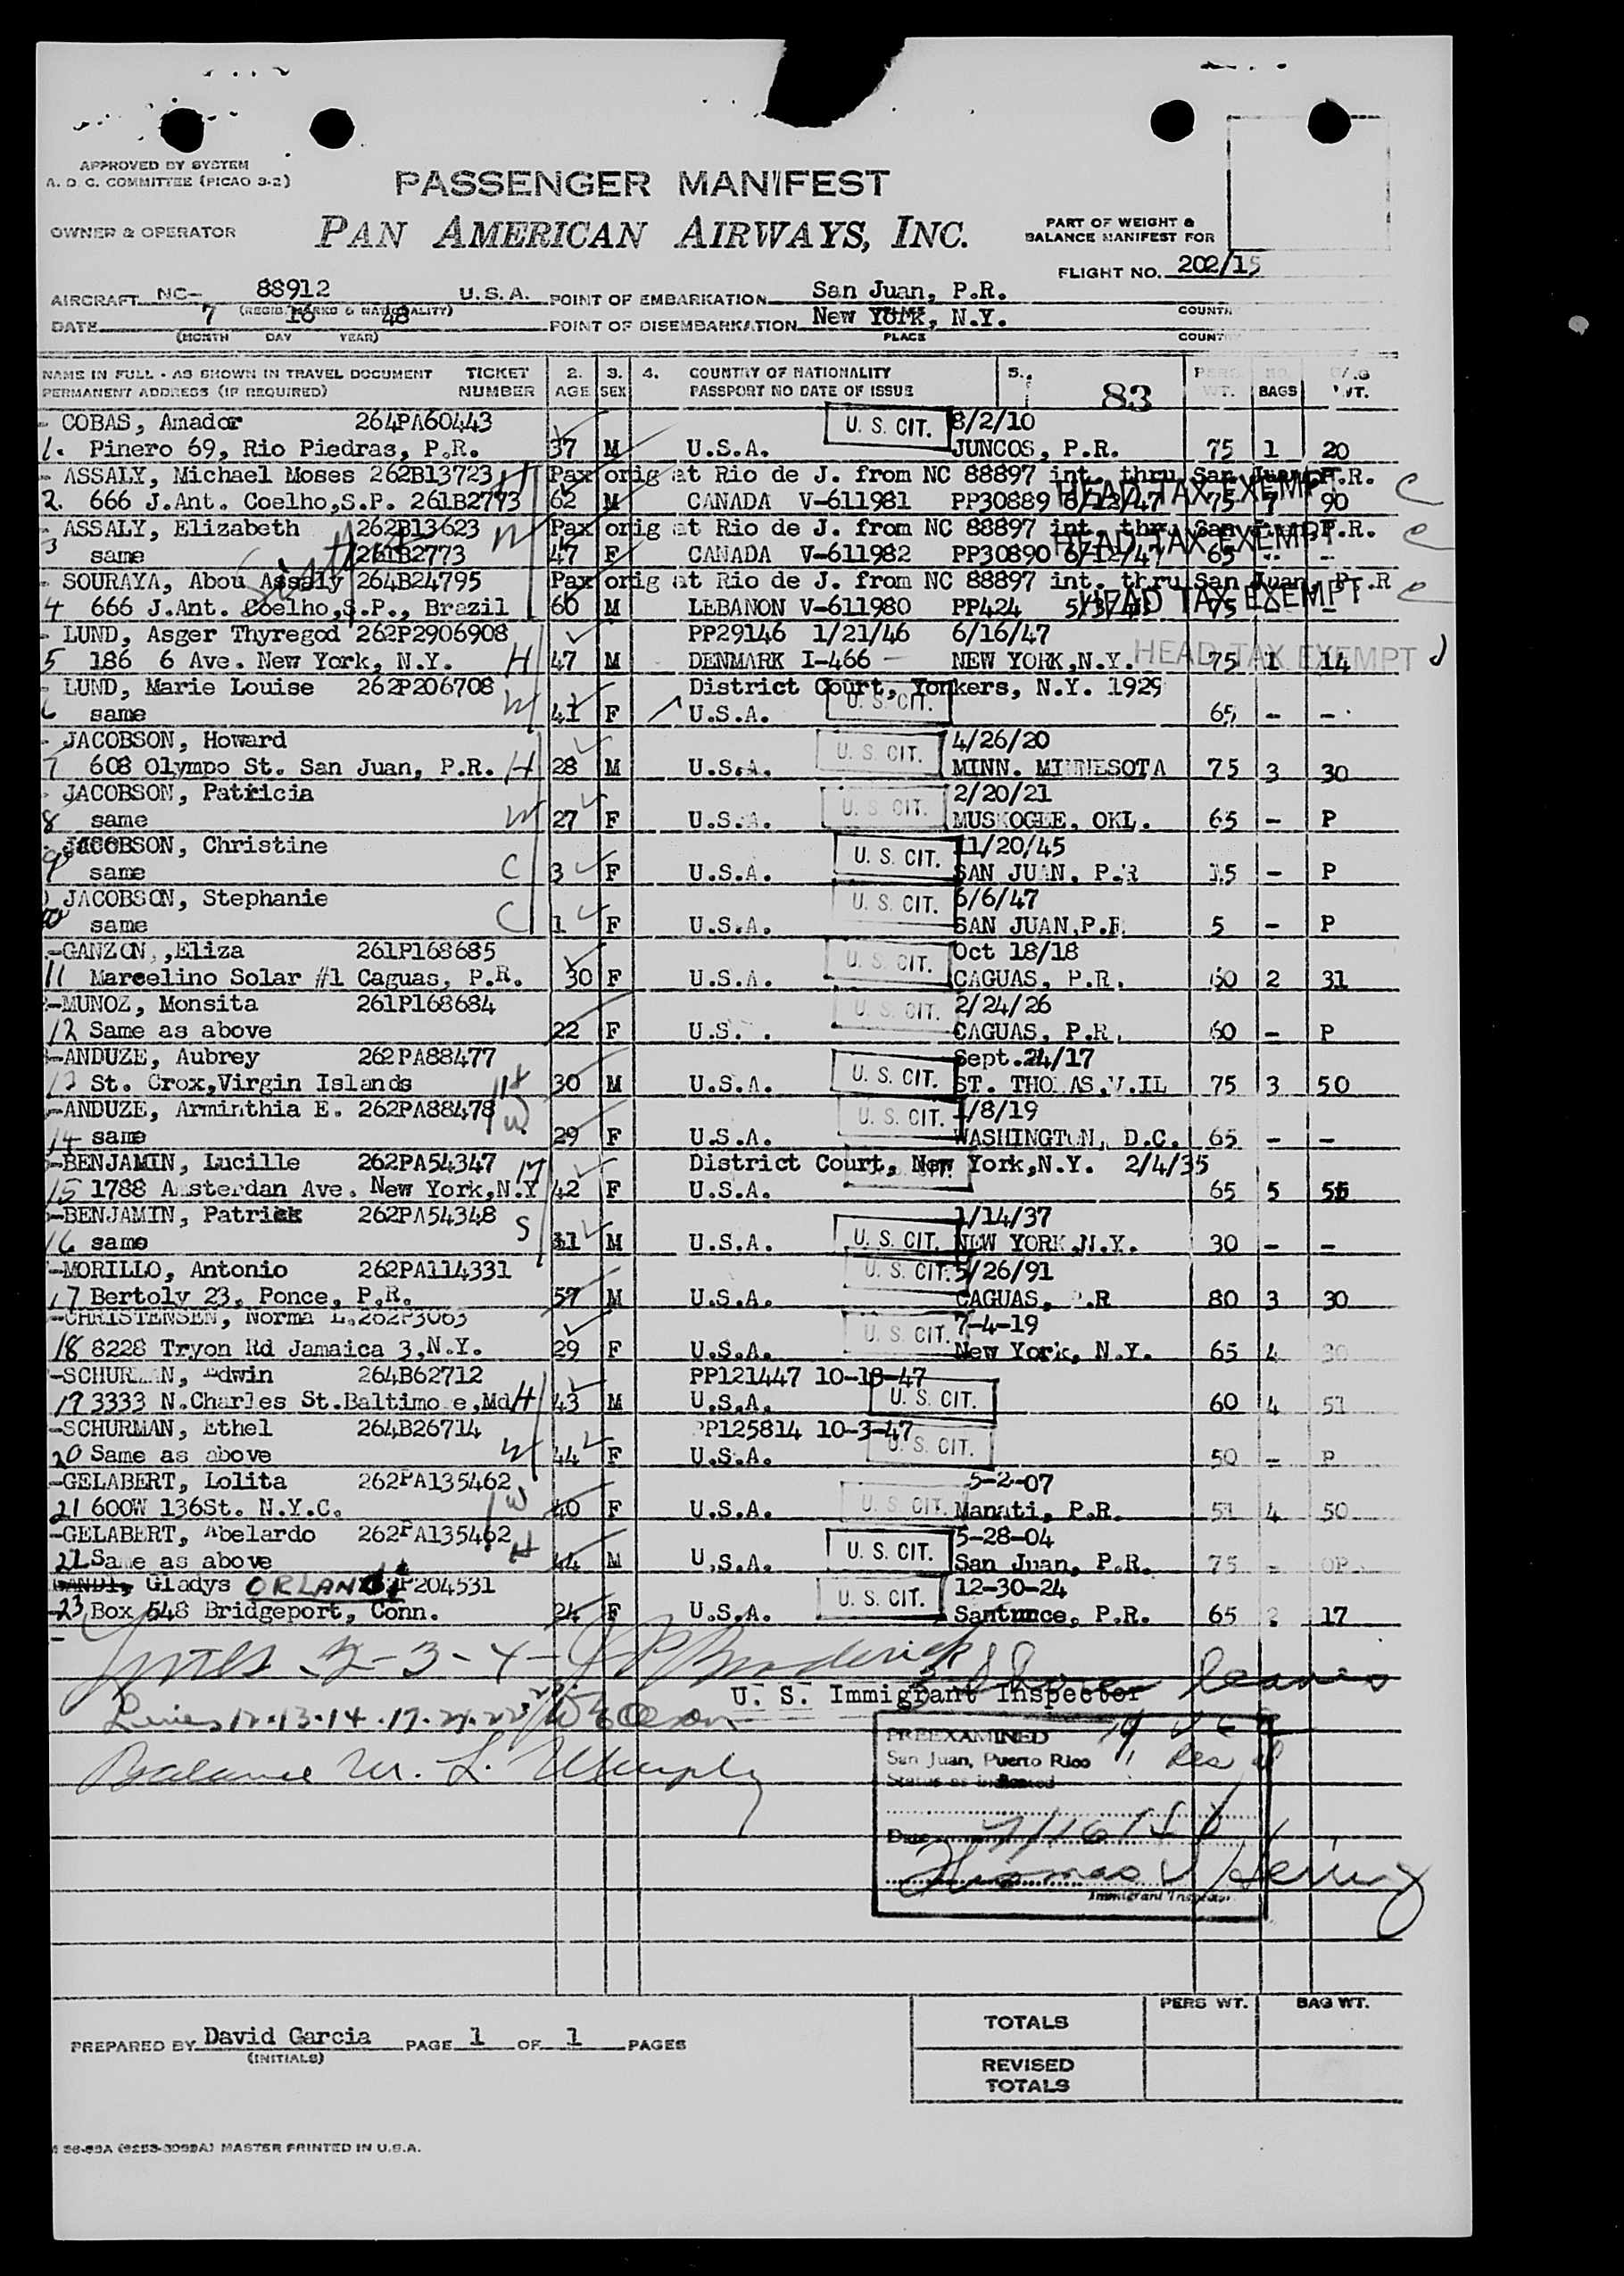 APPROVED BY SYSTEM
A. D. C. COMMITTEE (PICAO 3-2)
PASSENGER MANIFEST
OWNER & OPERATOR
PAN AMERICAN AIRWAYS, INC.
PART OF WEIGHT &
BALANCE MANIFEST FOR
FLIGHT NO. 202/15
AIRCRAFT NC- 88912 U.S.A. POINT OF EMBARKATION San Juan, P.R.
(REGIS. MARKS & NATIONALITY)
DATE 7 16 48 POINT OF DISEMBARKATION New York, N.Y.
(MONTH DAY YEAR) PLACE
NAME IN FULL - AS SHOWN IN TRAVEL DOCUMENT TICKET 2. 3. 4. COUNTRY OF NATIONALITY 5. 83 NO.
PERMANENT ADDRESS (IF REQUIRED) NUMBER AGE SEX PASSPORT NO DATE OF ISSUE WT. BAGS WT.
- COBAS, Amador 264PA60443 U. S. CIT. 8/2/10
1. Pinero 69, Rio Piedras, P.R. 37 M U.S.A. JUNCOS, P.R. 75 1 20
- ASSALY, Michael Moses 262B13723 H Pax orig at Rio de J. from NC 88897 int. thru San Juan P.R.
2. 666 J.Ant. Coelho,S.P. 261B2773 62 M CANADA V-611981 PP30889 6/12/47 HEAD TAX EXEMPT 75 7 90 C
- ASSALY, Elizabeth 262B13623 W Pax orig at Rio de J. from NC 88897 int. thru San Juan P.R.
3 same 261B2773 47 F CANADA V-611982 PP30890 6/12/47 HEAD TAX EXEMPT 65 - - C
- SOURAYA, Abou Assaly 264B24795 Pax orig at Rio de J. from NC 88897 int. thru San Juan P.R
4 666 J.Ant. Coelho,S.P., Brazil 60 M LEBANON V-611980 PP424 HEAD TAX EXEMPT 75 - - C
- LUND, Asger Thyregod 262P2906908 PP29146 1/21/46 6/16/47
5 186 6 Ave. New York, N.Y. H 47 M DENMARK I-466 - NEW YORK,N.Y. HEAD TAX EXEMPT 75 1 14
- LUND, Marie Louise 262P206708 W District Court, Yonkers, N.Y. 1929
6 same 41 F U.S.A. U. S. CIT. 65 - -
- JACOBSON, Howard 4/26/20
7 608 Olympo St. San Juan, P.R. H 28 M U.S.A. U. S. CIT. MINN. MINNESOTA 75 3 30
- JACOBSON, Patricia 2/20/21
8 same W 27 F U.S.A. U. S. CIT. MUSKOGEE, OKL. 65 - P
JACOBSON, Christine 11/20/45
9 same C 3 F U.S.A. U. S. CIT. SAN JUAN, P.R 15 - P
JACOBSON, Stephanie 6/6/47
10 same C 1 F U.S.A. U. S. CIT. SAN JUAN,P.R. 5 - P
-GANZON,,Eliza 261P168685 Oct 18/18
11 Marcelino Solar #1 Caguas, P.R. 30 F U.S.A. U. S. CIT. CAGUAS, P.R. 60 2 31
-MUNOZ, Monsita 261P168684 2/24/26
12 Same as above 22 F U.S. . U. S. CIT. CAGUAS, P.R. 60 - P
-ANDUZE, Aubrey 262PA88477 Sept.24/17
13 St. Crox,Virgin Islands H 30 M U.S.A. U. S. CIT. ST. THOMAS,V.IL 75 3 50
-ANDUZE, Arminthia E. 262PA88478 W 1/8/19
14 same 29 F U.S.A. U. S. CIT. WASHINGTON, D.C. 65 - -
-BENJAMIN, Lucille 262PA54347 M District Court, New York,N.Y. 2/4/35
15 1788 Amsterdan Ave. New York,N.Y 42 F U.S.A. 65 5 55
-BENJAMIN, Patrick 262PA54348 S 1/14/37
16 same 11 M U.S.A. U. S. CIT. NEW YORK,N.Y. 30 - -
-MORILLO, Antonio 262PA114331 5/26/91
17 Bertoly 23, Ponce, P.R. 57 M U.S.A. U. S. CIT. CAGUAS, P.R 80 3 30
-CHRISTENSEN, Norma L.262P3063 7-4-19
18 8228 Tryon Rd Jamaica 3,N.Y. 29 F U.S.A. U. S. CIT. New York, N.Y. 65 4 30
-SCHURMAN, Edwin 264B62712 PP121447 10-18-47
19 3333 N.Charles St.Baltimo e,Md H 43 M U.S.A. U. S. CIT. 60 4 51
-SCHURMAN, Ethel 264B26714 PP125814 10-3-47
20 Same as above W 44 F U.S.A. U. S. CIT. 50 - P
-GELABERT, Lolita 262PA135462 W 5-2-07
21 600W 136St. N.Y.C. 40 F U.S.A. U. S. CIT. Manati, P.R. 51 4 50
-GELABERT, Abelardo 262PA135462 H 5-28-04
22 Same as above 44 M U.S.A. U. S. CIT. San Juan, P.R. 75 - OP
Gladys ORLANDI P204531 12-30-24
23 Box 548 Bridgeport, Conn. 24 F U.S.A. U. S. CIT. Santurce, P.R. 65 17
2-3-4- Broderick
U. S. Immigrant Inspector
Lines 12.13.14.17.21.22
PREEXAMINED
San Juan, Puerto Rico
Status as indicated
Balance M. L. Murphy
Date 7/16/48
Thomas
Immigrant Inspector
PERS WT. BAG WT.
TOTALS
PREPARED BY David Garcia PAGE 1 OF 1 PAGES
(INITIALS)
REVISED
TOTALS
MASTER PRINTED IN U.S.A.